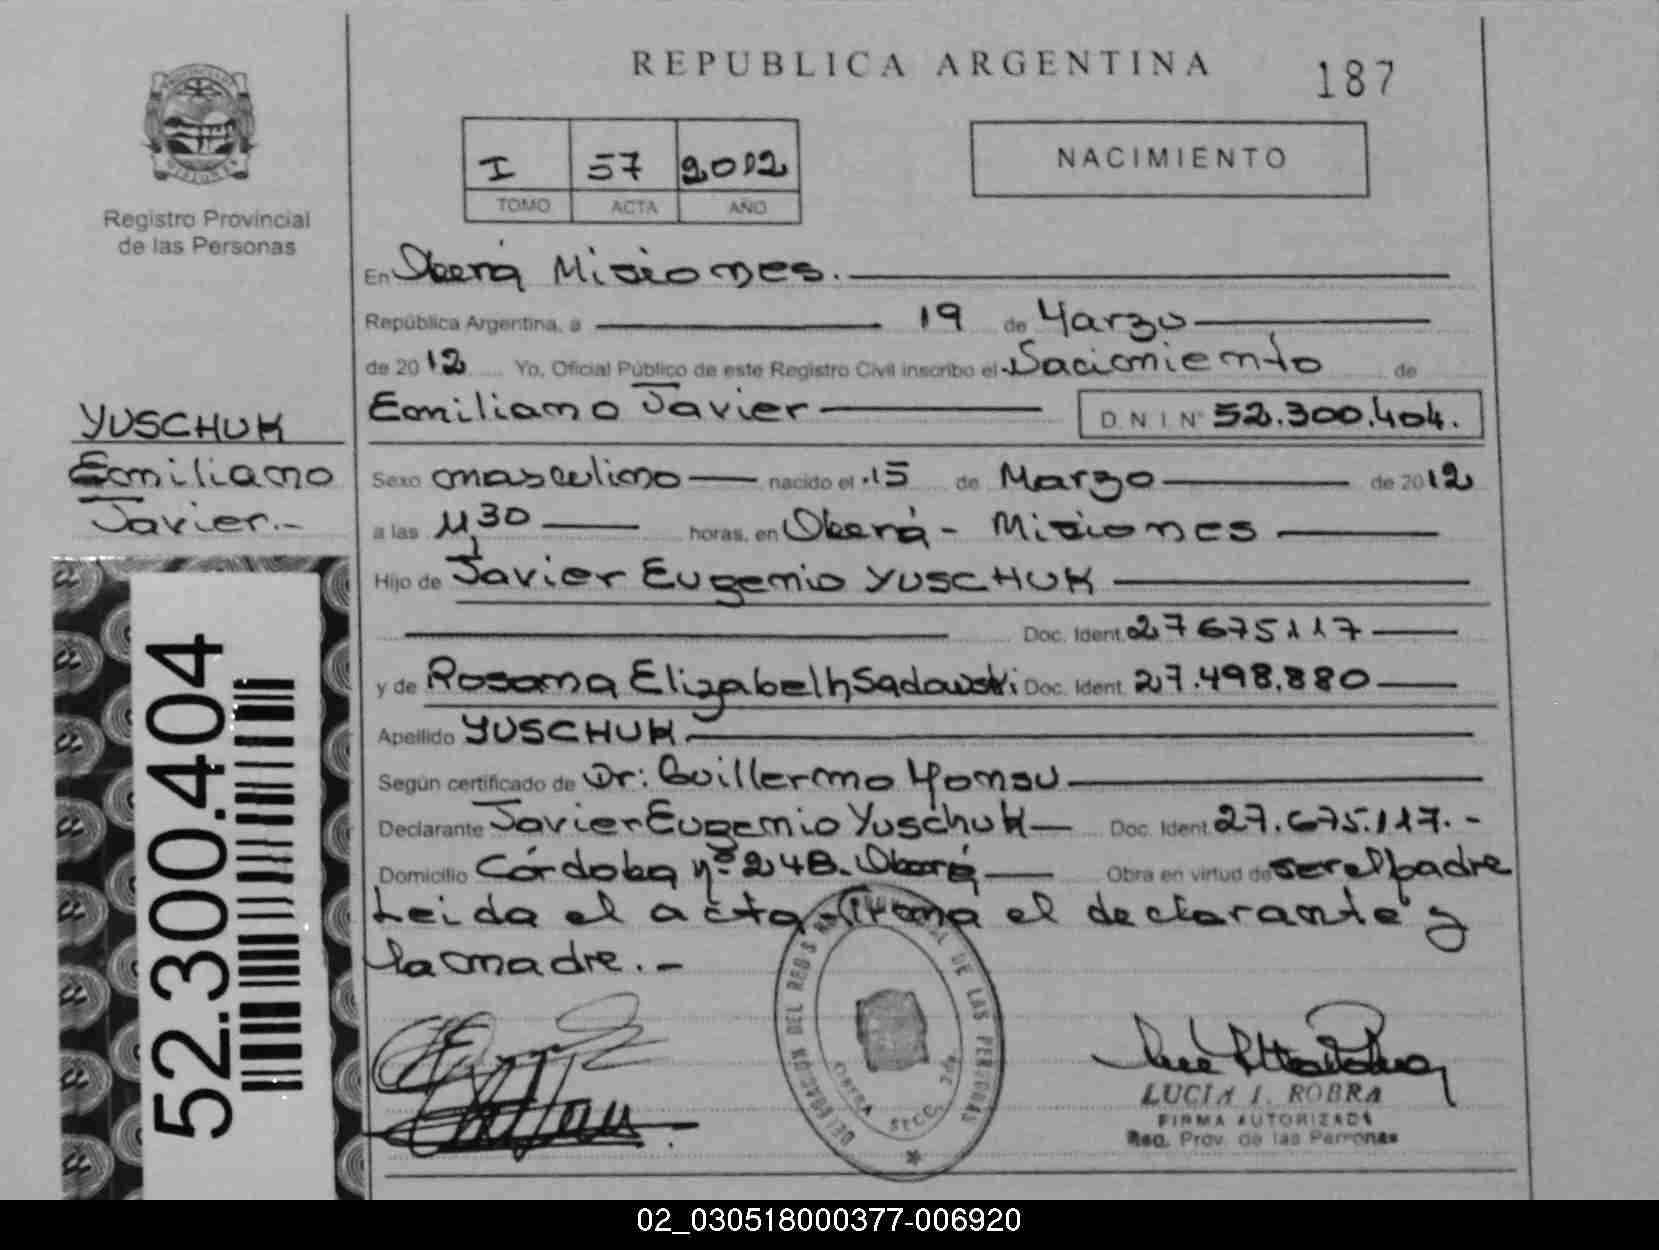 REPUBLICA ARGENTINA
187
I 57 2012
TOMO ACTA AÑO
NACIMIENTO
Registro Provincial
de las Personas
En Oberá Misiones.
República Argentina, a 19 de Marzo
de 2012 Yo, Oficial Público de este Registro Civil inscribo el Nacimiento de
Emiliano Javier D.N.I. Nº 52.300.404.
YUSCHUK
Emiliano
Javier.-
Sexo masculino nacido el 15 de Marzo de 2012
a las 11,30 horas, en Oberá - Misiones
Hijo de Javier Eugenio YUSCHUK
Doc. Ident. 27675117
y de Rosana Elizabeth Sadowski Doc. Ident. 27.498.880
Apellido YUSCHUK
Según certificado de Dr: Guillermo
Declarante Javier Eugenio Yuschuk Doc. Ident. 27.675.117.-
Domicilio Córdoba nº 248. Oberá Obra en virtud de ser el padre
Leida el acta firma el declarante y
la madre.-
52.300.404
DELEGACION DEL REG DE LAS PERSONAS
OBERA SECC. 2da
LUCIA I. ROBRA
FIRMA AUTORIZADA
Reg. Prov. de las Personas
02_030518000377-006920